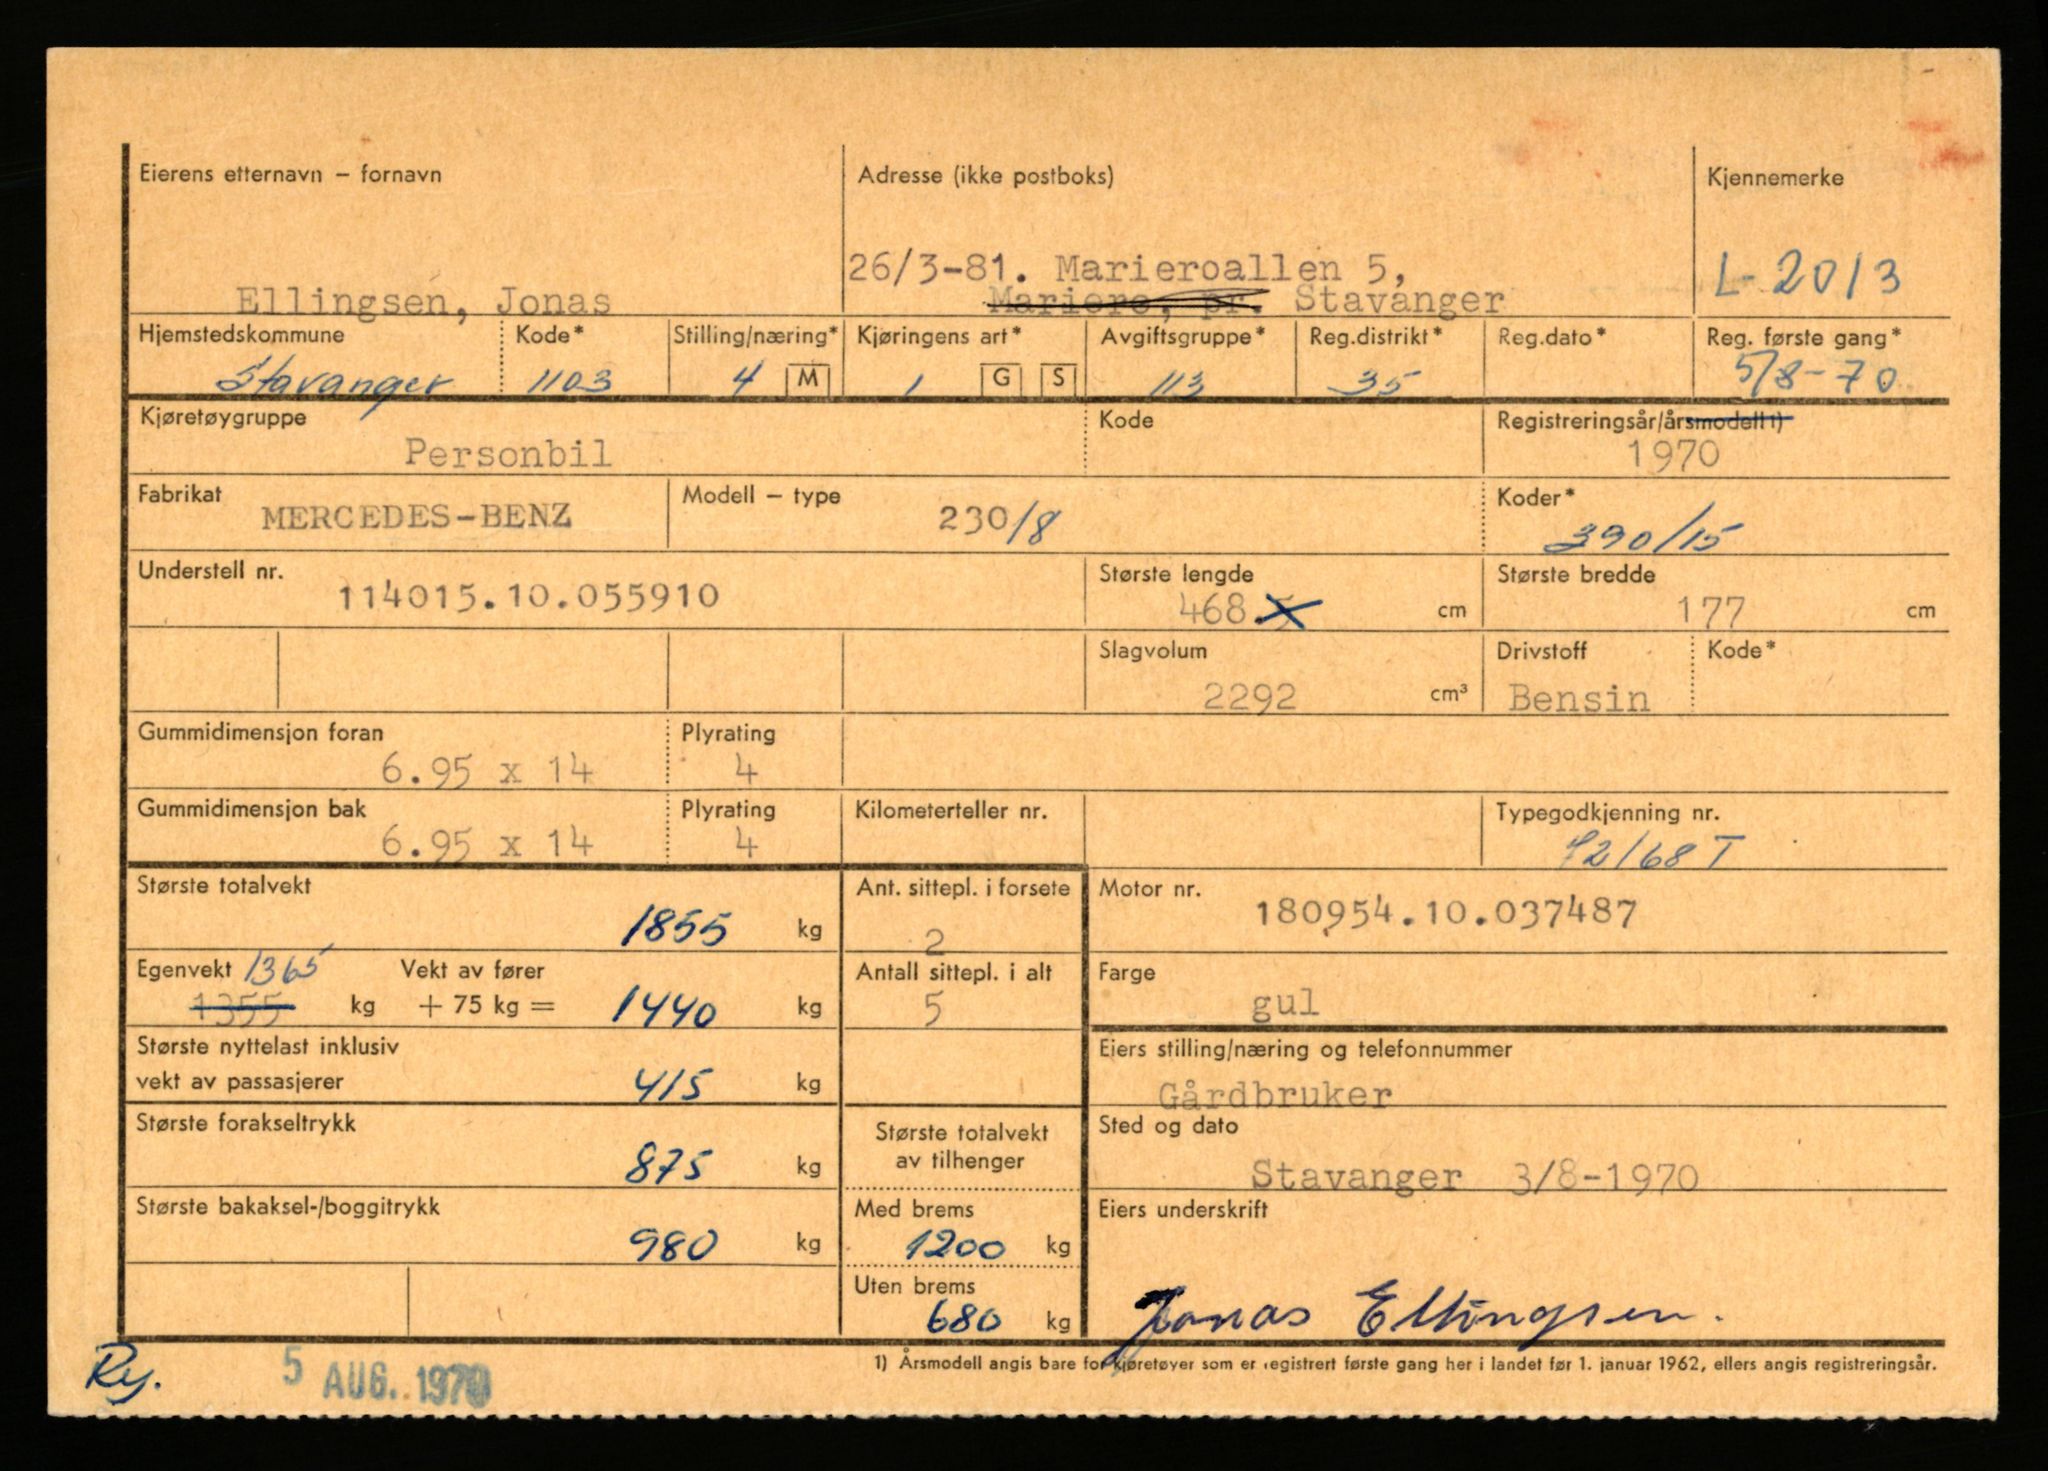 Eierens etternavn – fornavn
Adresse (ikke postboks)
Kjennemerke
26/3-81. Marieroallen 5,
L-2013
Ellingsen, Jonas
Mariero, pr. Stavanger
Hjemstedskommune
Kode*
Stilling/næring*
Kjøringens art*
Avgiftsgruppe*
Reg.distrikt*
Reg.dato*
Reg. første gang*
Stavanger
1103
4 M
1 G S
113
35
5/8-70
Kjøretøygruppe
Kode
Registreringsår/årsmodell 1)
Personbil
1970
Fabrikat
Modell – type
Koder*
MERCEDES-BENZ
230/8
390/15
Understell nr.
Største lengde
Største bredde
114015.10.055910
468.5 cm
177 cm
Slagvolum
Drivstoff
Kode*
2292 cm³
Bensin
Gummidimensjon foran
Plyrating
6.95 x 14
4
Gummidimensjon bak
Plyrating
Kilometerteller nr.
Typegodkjenning nr.
6.95 x 14
4
/68 T
Største totalvekt
Ant. sittepl. i forsete
Motor nr.
1855 kg
2
180954.10.037487
Egenvekt 1365
Vekt av fører
Antall sittepl. i alt
Farge
1355 kg
+ 75 kg = 1440 kg
5
gul
Største nyttelast inklusiv
vekt av passasjerer
415 kg
Eiers stilling/næring og telefonnummer
Gårdbruker
Største forakseltrykk
875 kg
Største totalvekt
av tilhenger
Sted og dato
Stavanger 3/8-1970
Største bakaksel-/boggitrykk
980 kg
Med brems
1200 kg
Eiers underskrift
Uten brems
680 kg
Jonas Ellingsen.
5 AUG. 1970
1) Årsmodell angis bare for kjøretøyer som er registrert første gang her i landet før 1. januar 1962, ellers angis registreringsår.